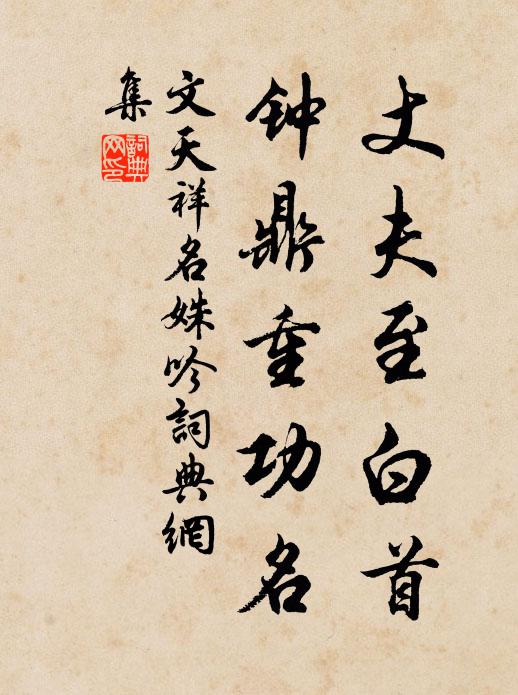 丈夫至白首
钟鼎重功名
文天祥名姝吟詞典網
集
詞典網印